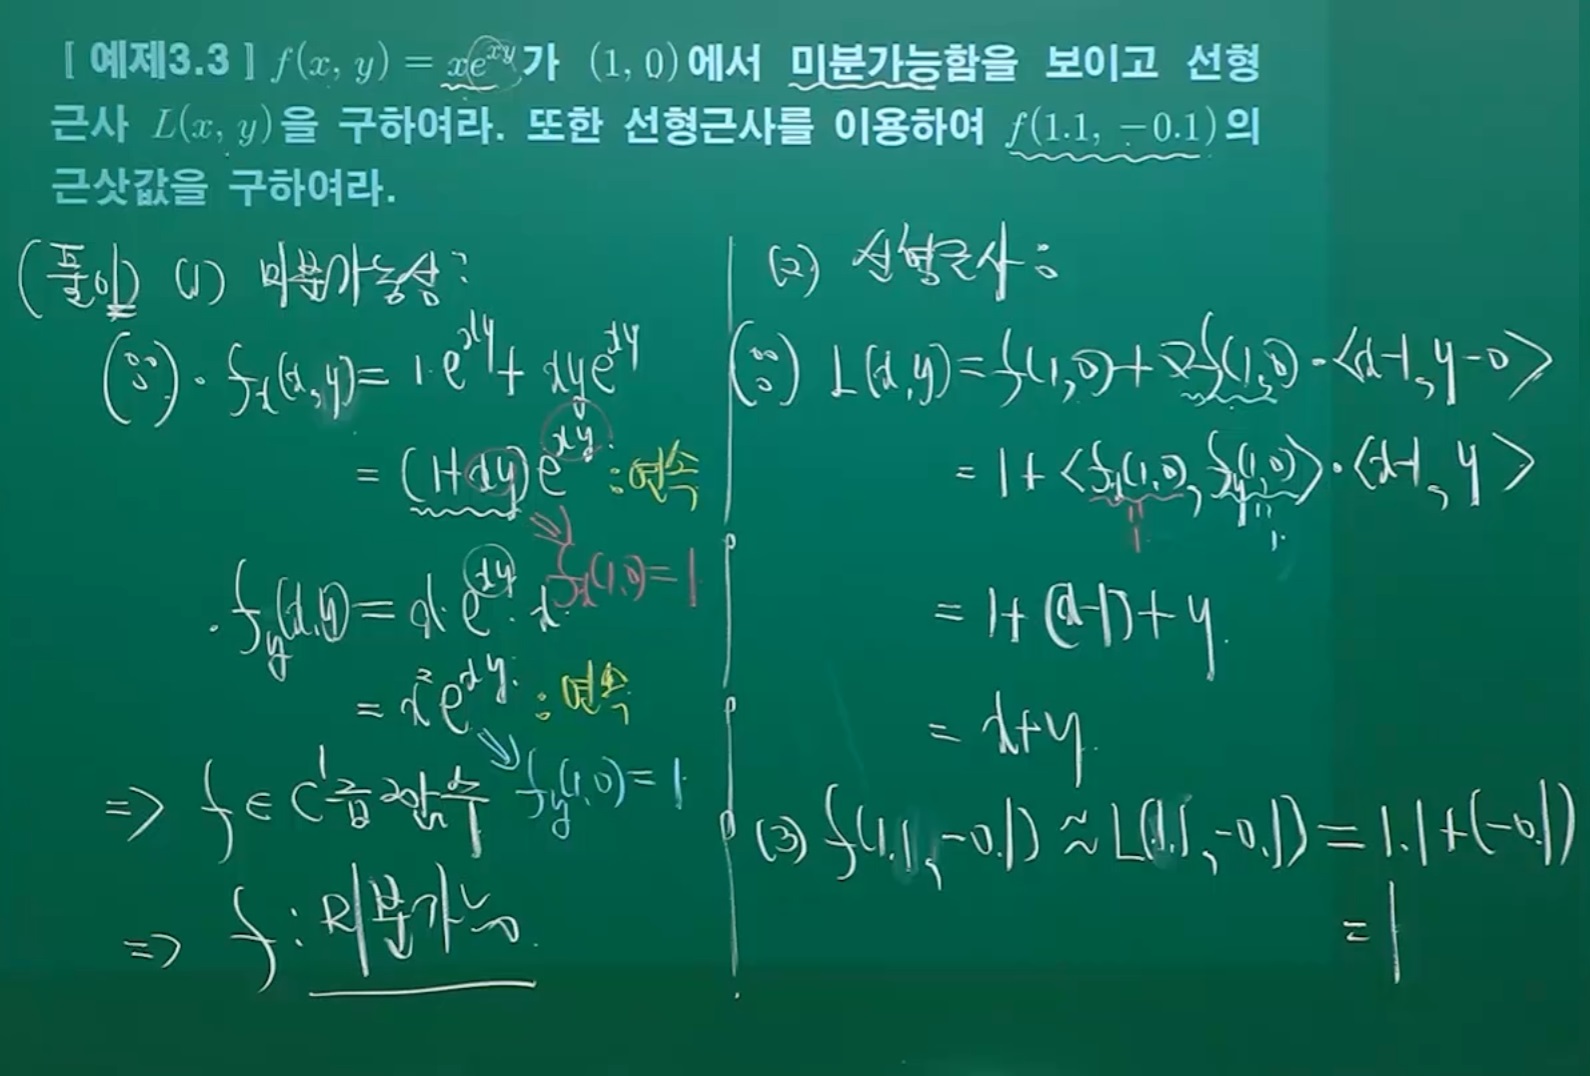 [ 예제3.3 ] f(x, y) = xe^{xy}가 (1, 0)에서 미분가능함을 보이고 선형
근사 L(x, y)을 구하여라. 또한 선형근사를 이용하여 f(1.1, −0.1)의
근삿값을 구하여라.
(풀이) (1) 미분가능성 :
(∵) · f_x(x,y) = 1·e^{xy} + xye^{xy}
= (1+xy)e^{xy} : 연속
f_x(1,0) = 1
· f_y(x,y) = x·e^{xy}·x
= x²e^{xy} : 연속
f_y(1,0) = 1
=> f ∈ C¹급 함수
=> f : 미분가능.
(2) 선형근사 :
(∵) L(x,y) = f(1,0) + ∇f(1,0)·<x-1, y-0>
= 1 + <f_x(1,0), f_y(1,0)>·<x-1, y>
= 1 + (x-1) + y.
= x+y.
(3) f(1.1, -0.1) ≈ L(1.1, -0.1) = 1.1 + (-0.1)
= 1